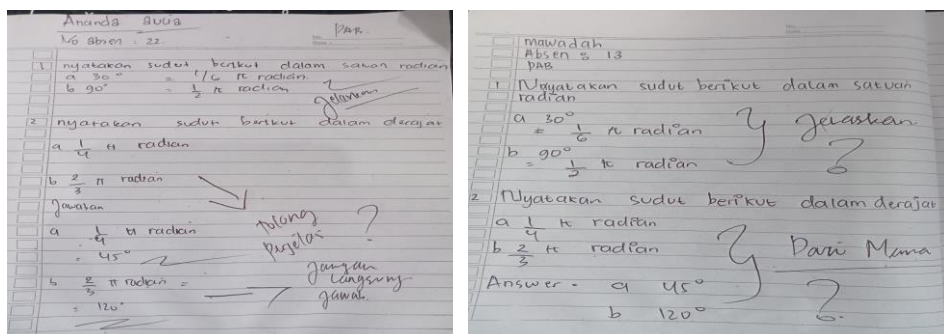 Ananda aulia
No absen : 22
PAB
1 nyatakan sudut berikut dalam satuan radian
a 30° = 1/6 π radian
b 90° = 1/2 π radian
Jelaskan
2 nyatakan sudut berikut dalam derajat
a 1/4 π radian
b 2/3 π radian
Jawaban
a 1/4 π radian
= 45°
b 2/3 π radian =
= 120°
tolong ?
Jangan
langsung
jawab
mawadah
Absen : 13
PAB
1 Nyatakan sudut berikut dalam satuan
radian
a 30°
= 1/6 π radian
b 90°
= 1/2 π radian
Jelaskan
?
2 Nyatakan sudut berikut dalam derajat
a 1/4 π radian
b 2/3 π radian
Dari Mana
?
Answer = a 45°
b 120°